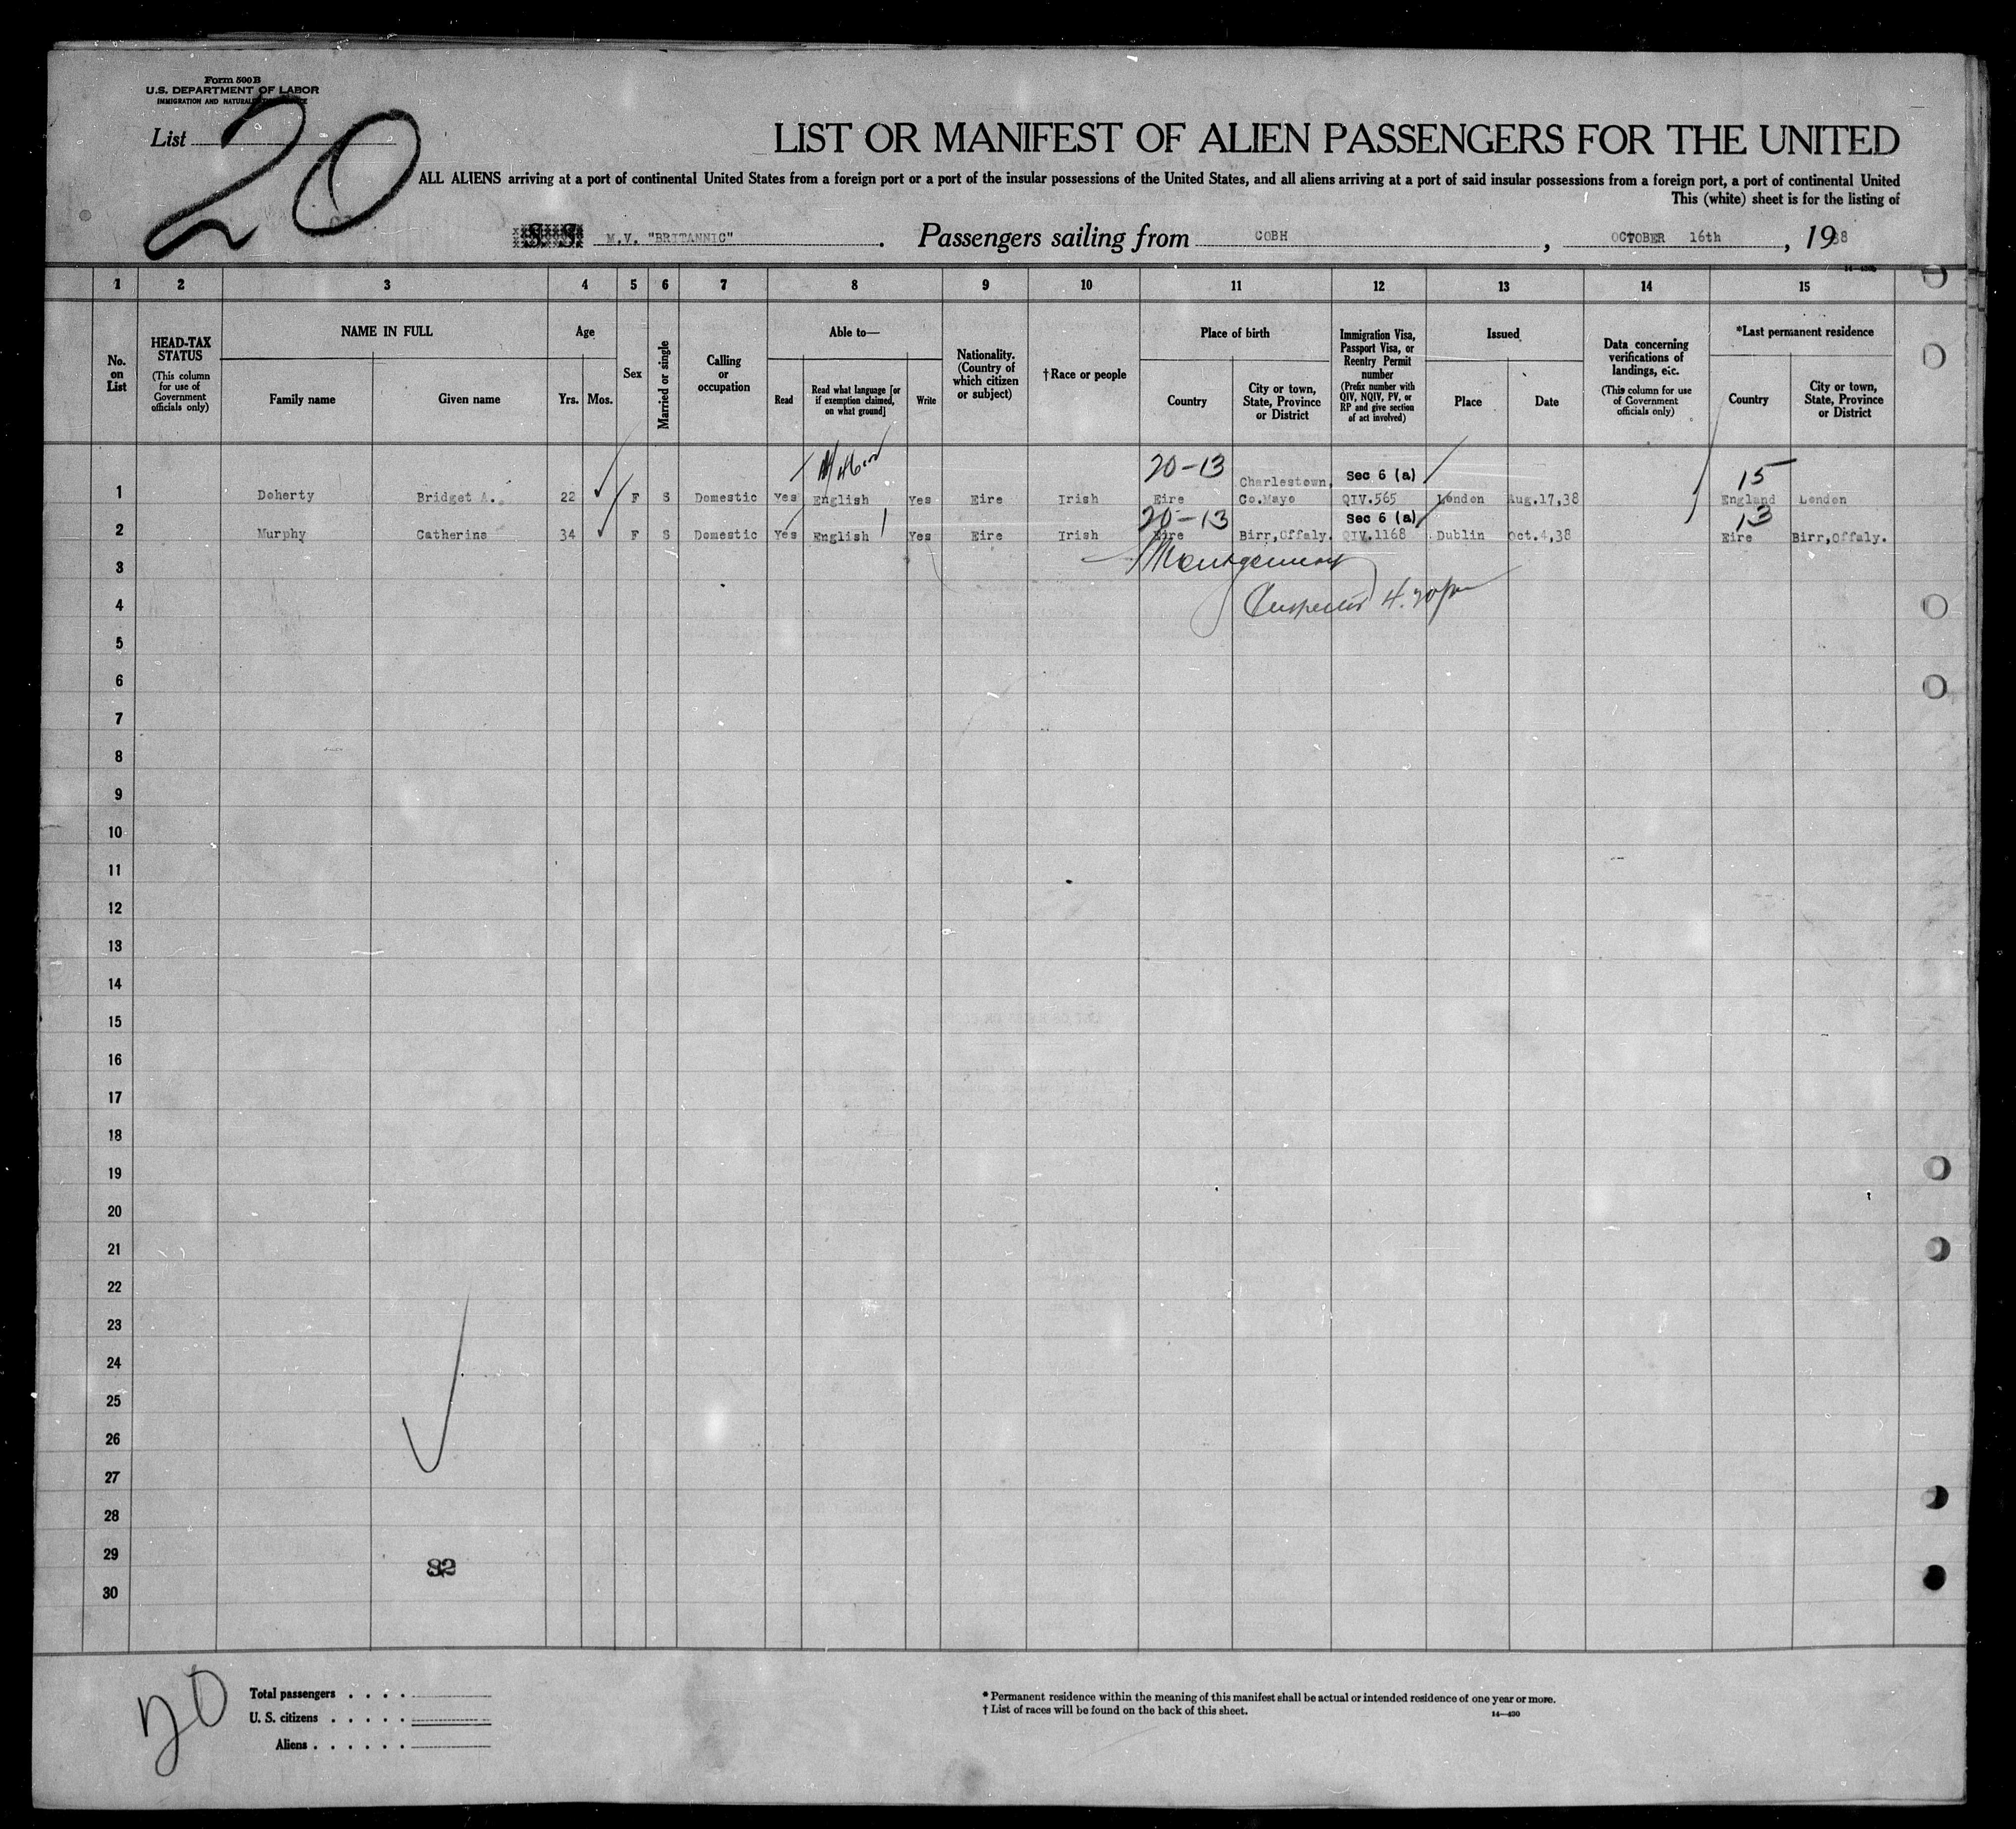 Form 500 B
U.S. DEPARTMENT OF LABOR
IMMIGRATION AND
List
20
LIST OR MANIFEST OF ALIEN PASSENGERS FOR THE UNITED
ALL ALIENS arriving at a port of continental United States from a foreign port or a port of the insular possessions of the United States, and all aliens arriving at a port of said insular possessions from a foreign port, a port of continental United
This (white) sheet is for the listing of
S. S. M.V. "BRITANNIC" . Passengers sailing from COBH , OCTOBER 16th , 1938
1 2 3 4 5 6 7 8 9 10 11 12 13 14 15
No. on List
HEAD-TAX STATUS (This column for use of Government officials only)
NAME IN FULL
Family name Given name
Age
Yrs. Mos.
Sex
Married or single
Calling or occupation
Able to—
Read
Read what language [or if exemption claimed, on what ground]
Write
Nationality. (Country of which citizen or subject)
† Race or people
Place of birth
Country
City or town, State, Province or District
Immigration Visa, Passport Visa, or Reentry Permit number (Prefix number with QIV, NQIV, PV, or RP and give section of act involved)
Issued
Place Date
Data concerning verifications of landings, etc. (This column for use of Government officials only)
*Last permanent residence
Country
City or town, State, Province or District
20-13 Sec 6 (a) 15
1 Doherty Bridget A. 22 F S Domestic Yes English Yes Eire Irish Eire Charlestown, Co.Mayo QIV.565 London Aug.17,38 England London
20-13 Sec 6 (a) 13
2 Murphy Catherine 34 F S Domestic Yes English Yes Eire Irish Eire Birr,Offaly. QIV.1168 Dublin Oct.4,38 Eire Birr,Offaly.
3 Montgomery
4 Inspector 4.20pm
5
6
7
8
9
10
11
12
13
14
15
16
17
18
19
20
21
22
23
24
25
26
27
28
29
82
30
20
Total passengers . . . .
U. S. citizens . . . . .
Aliens . . . . . .
* Permanent residence within the meaning of this manifest shall be actual or intended residence of one year or more.
† List of races will be found on the back of this sheet.
14—430